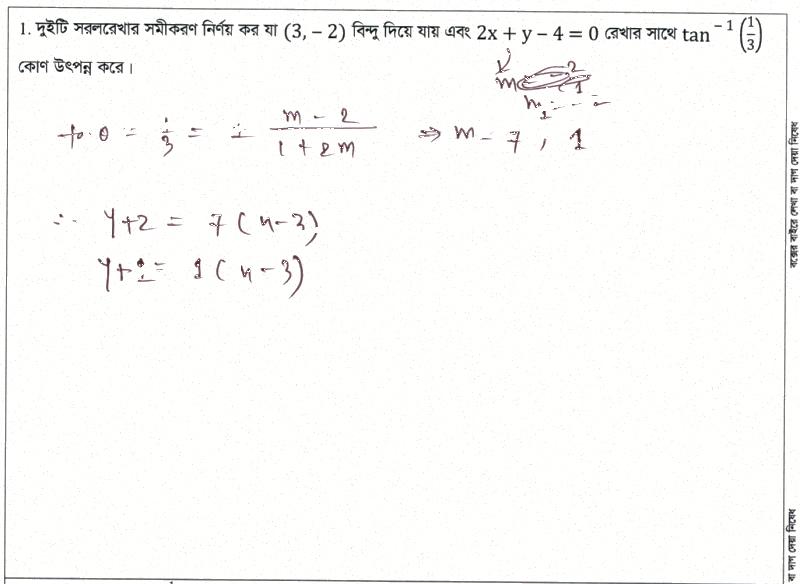 1. দুইটি সরলরেখার সমীকরণ নির্ণয় কর যা (3, − 2) বিন্দু দিয়ে যায় এবং 2x + y − 4 = 0 রেখার সাথে tan⁻¹ (1/3)
কোণ উৎপন্ন করে।
tan θ = 1/3 = ± (m − 2)/(1 + 2m) ⇒ m = 7, 1
∴ y+2 = 7(x−3),
y+2 = 1(x−3)
বক্সের বাইরে লেখা বা দাগ দেয়া নিষেধ
বা দাগ দেয়া নিষেধ